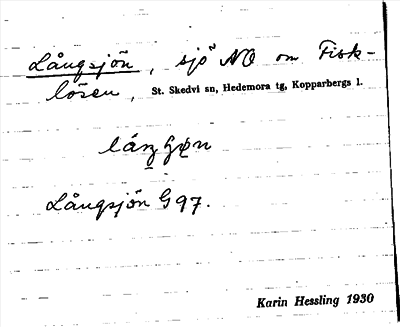 Långsjön, sjö NO om Fisk-
lösen, St. Skedvi sn, Hedemora tg, Kopparbergs l.
Långsjön G 97.
Karin Hessling 1930